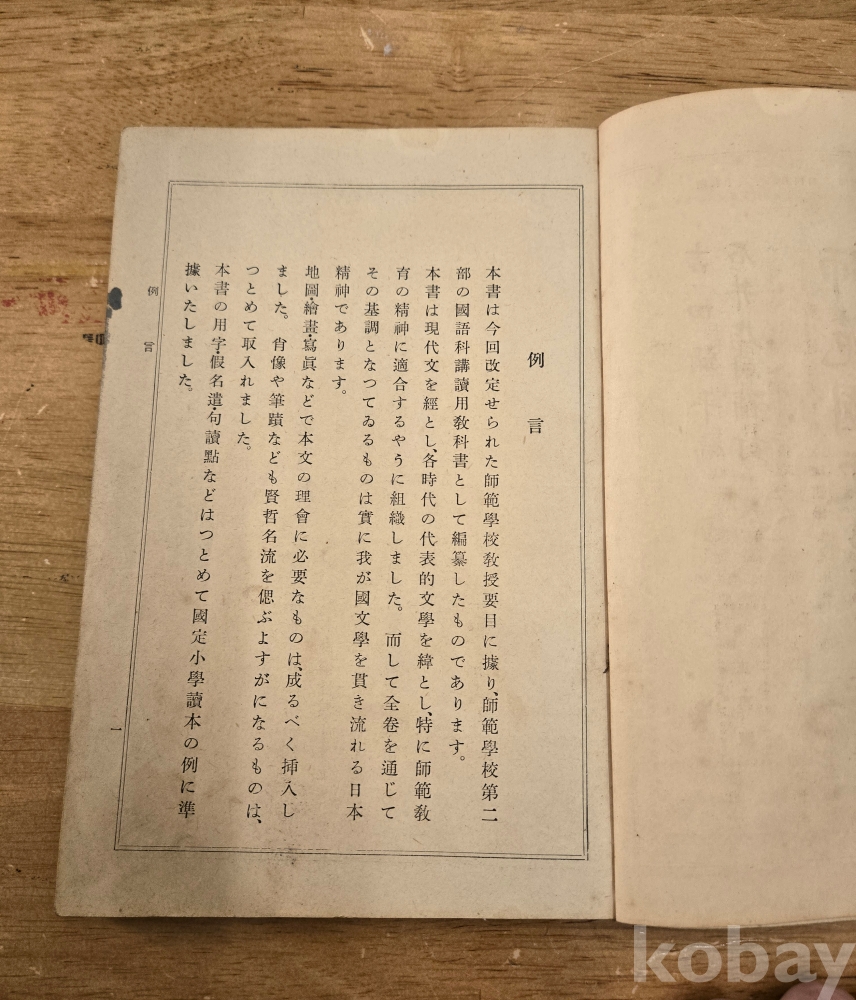 例言
本書は今回改定せられた師範學校敎授要目に據り、師範學校第二
部の國語科講讀用敎科書として編纂したものであります。
本書は現代文を經とし、各時代の代表的文學を緯とし、特に師範敎
育の精神に適合するやうに組織しました。而して全卷を通じて
その基調となつてゐるものは實に我が國文學を貫き流れる日本
精神であります。
地圖・繪畫・寫眞などで本文の理會に必要なものは、成るべく挿入し
ました。肖像や筆蹟なども賢哲名流を偲ぶよすがになるものは、
つとめて取入れました。
本書の用字・假名遣・句讀點などはつとめて國定小學讀本の例に準
據いたしました。
例言
一
kobay